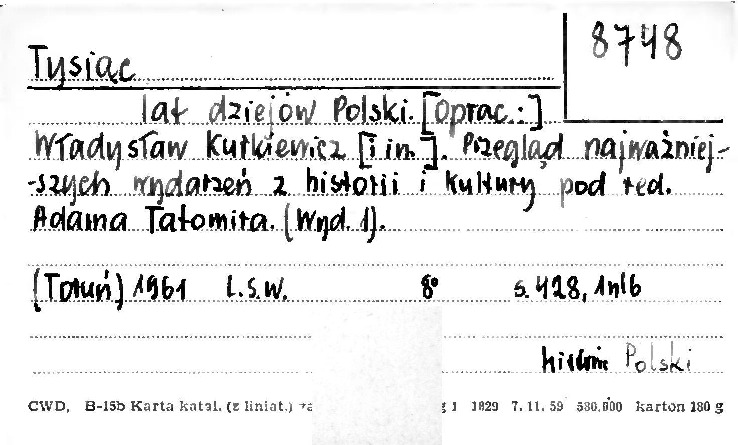 8748
Tysiąc
lat dziejów Polski. [Oprac.:]
Władysław Kurkiewicz [i in.]. Przegląd najważniej-
-szych wydarzeń z historii i kultury pod red.
Adama Tatomira. (Wyd. 1).
(Toruń) 1961 L.S.W. 8° s. 428, 1nlb
historia Polski
CWD, B-15b Karta katal. (z liniat.) 1 1829 7. 11. 59 580.000 karton 180 g